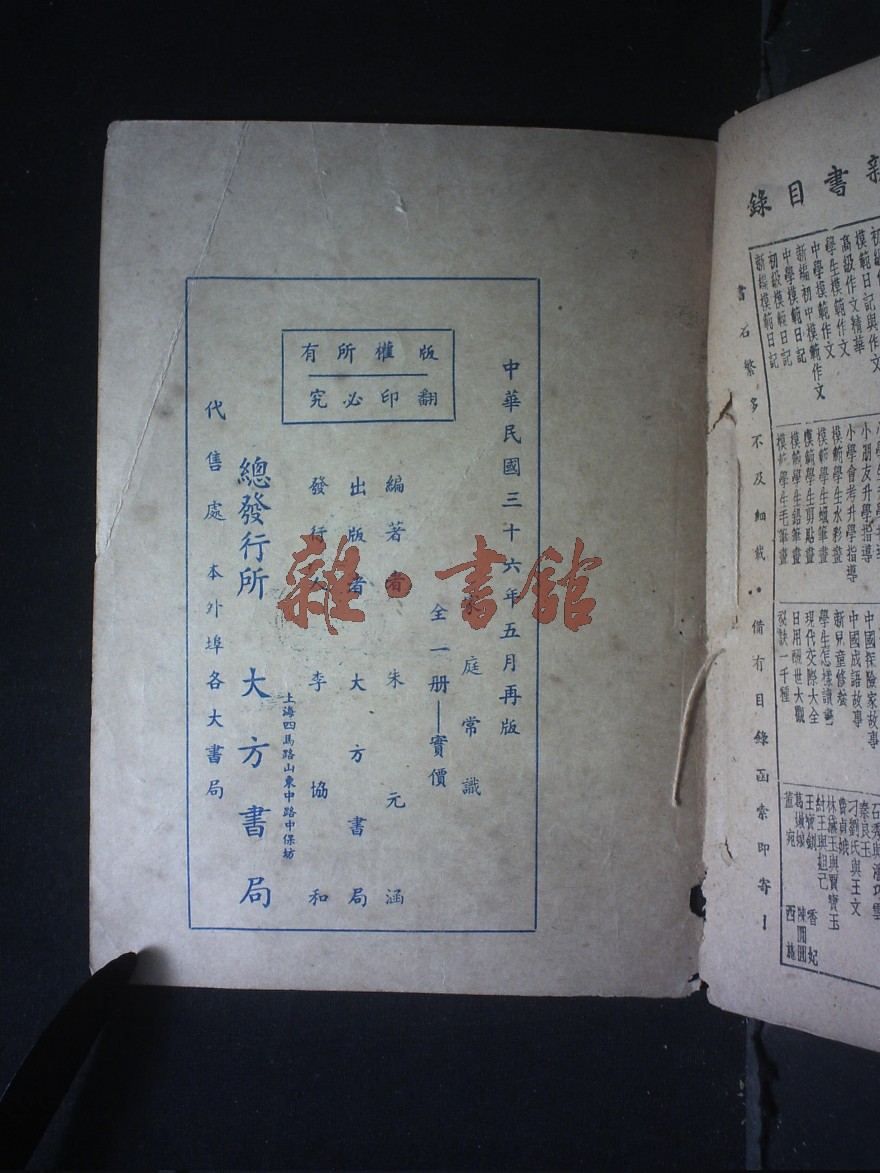 中華民國三十六年五月再版
家庭常識
全一册——實價
版權所有
翻印必究
編著者 朱元涵
出版者 大方書局
發行人 李協和
上海四馬路山東中路中保坊
總發行所 大方書局
代售處 本外埠各大書局
雜·書館
書目錄
模範日記與作文
高級作文精華
學生模範作文
中學模範作文
新編初中模範作文
中學模範日記
初級模範日記
新編模範日記
小朋友升學指導
小學會考升學指導
模範學生水彩畫
模範學生蠟筆畫
模範學生剪點畫
模範學生鉛筆畫
模範學生毛筆畫
中國探險家故事
中國成語故事
新兒童修養
學生怎樣讀書
現代交際大全
日用酬世大觀
秘訣一千種
秦良玉
刁劉氏與王文
費貞娥
林黛玉與賈寶玉
紂王與妲己
王寶釧 香妃
葛嫩娘 陳圓圓
董宛 西施
書石繁多不及細載··備有目錄函索印寄！